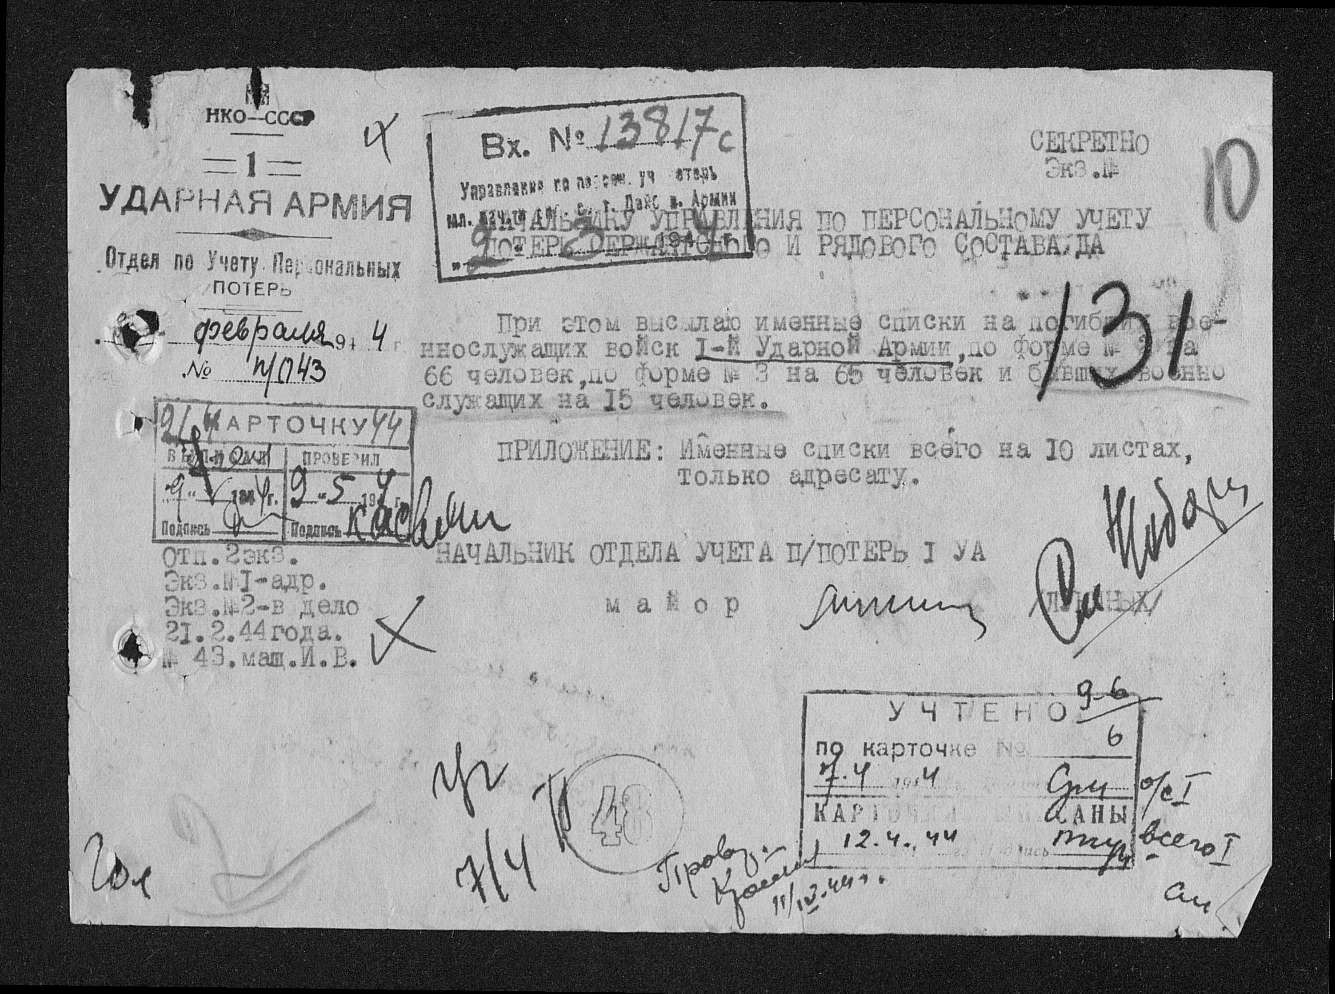 НКО—СССР
=1=
УДАРНАЯ АРМИЯ
Отдел по Учету Персональных
ПОТЕРЬ
февраля 194 4 г
№ п/043
Вх. № 13817с
Управление по персон. уч потерь
Армии
„2“ 3 1944 г.
СЕКРЕТНО
Экз.№
10
НАЧАЛЬНИКУ УПРАВЛЕНИЯ ПО ПЕРСОНАЛЬНОМУ УЧЕТУ
ПОТЕРЬ СЕРЖАНТСКОГО И РЯДОВОГО СОСТАВА ДА
131
При этом высылаю именные списки на погибших вое-
ннослужащих войск I-й Ударной Армии,по форме № 2 на
66 человек,по форме № 3 на 65 человек и бывших военно
служащих на 15 человек.
ПРИЛОЖЕНИЕ: Именные списки всего на 10 листах,
только адресату.
КАРТОЧКУ 44
ВЫПИСАЛ ПРОВЕРИЛ
„9“ 1944г. 9 „5 194 4 г.
Подпись Подпись
НАЧАЛЬНИК ОТДЕЛА УЧЕТА П/ПОТЕРЬ I УА
майор
Отп.2экз.
Экз.№1-адр.
Экз.№2-в дело
21.2.44года.
№ 43.маш.И.В.
УЧТЕНО 9-6
по карточке № 6
7.4 1944
КАРТОЧКИ ПИСАНЫ
12.4.44
о/с I
всего I
48
7/4